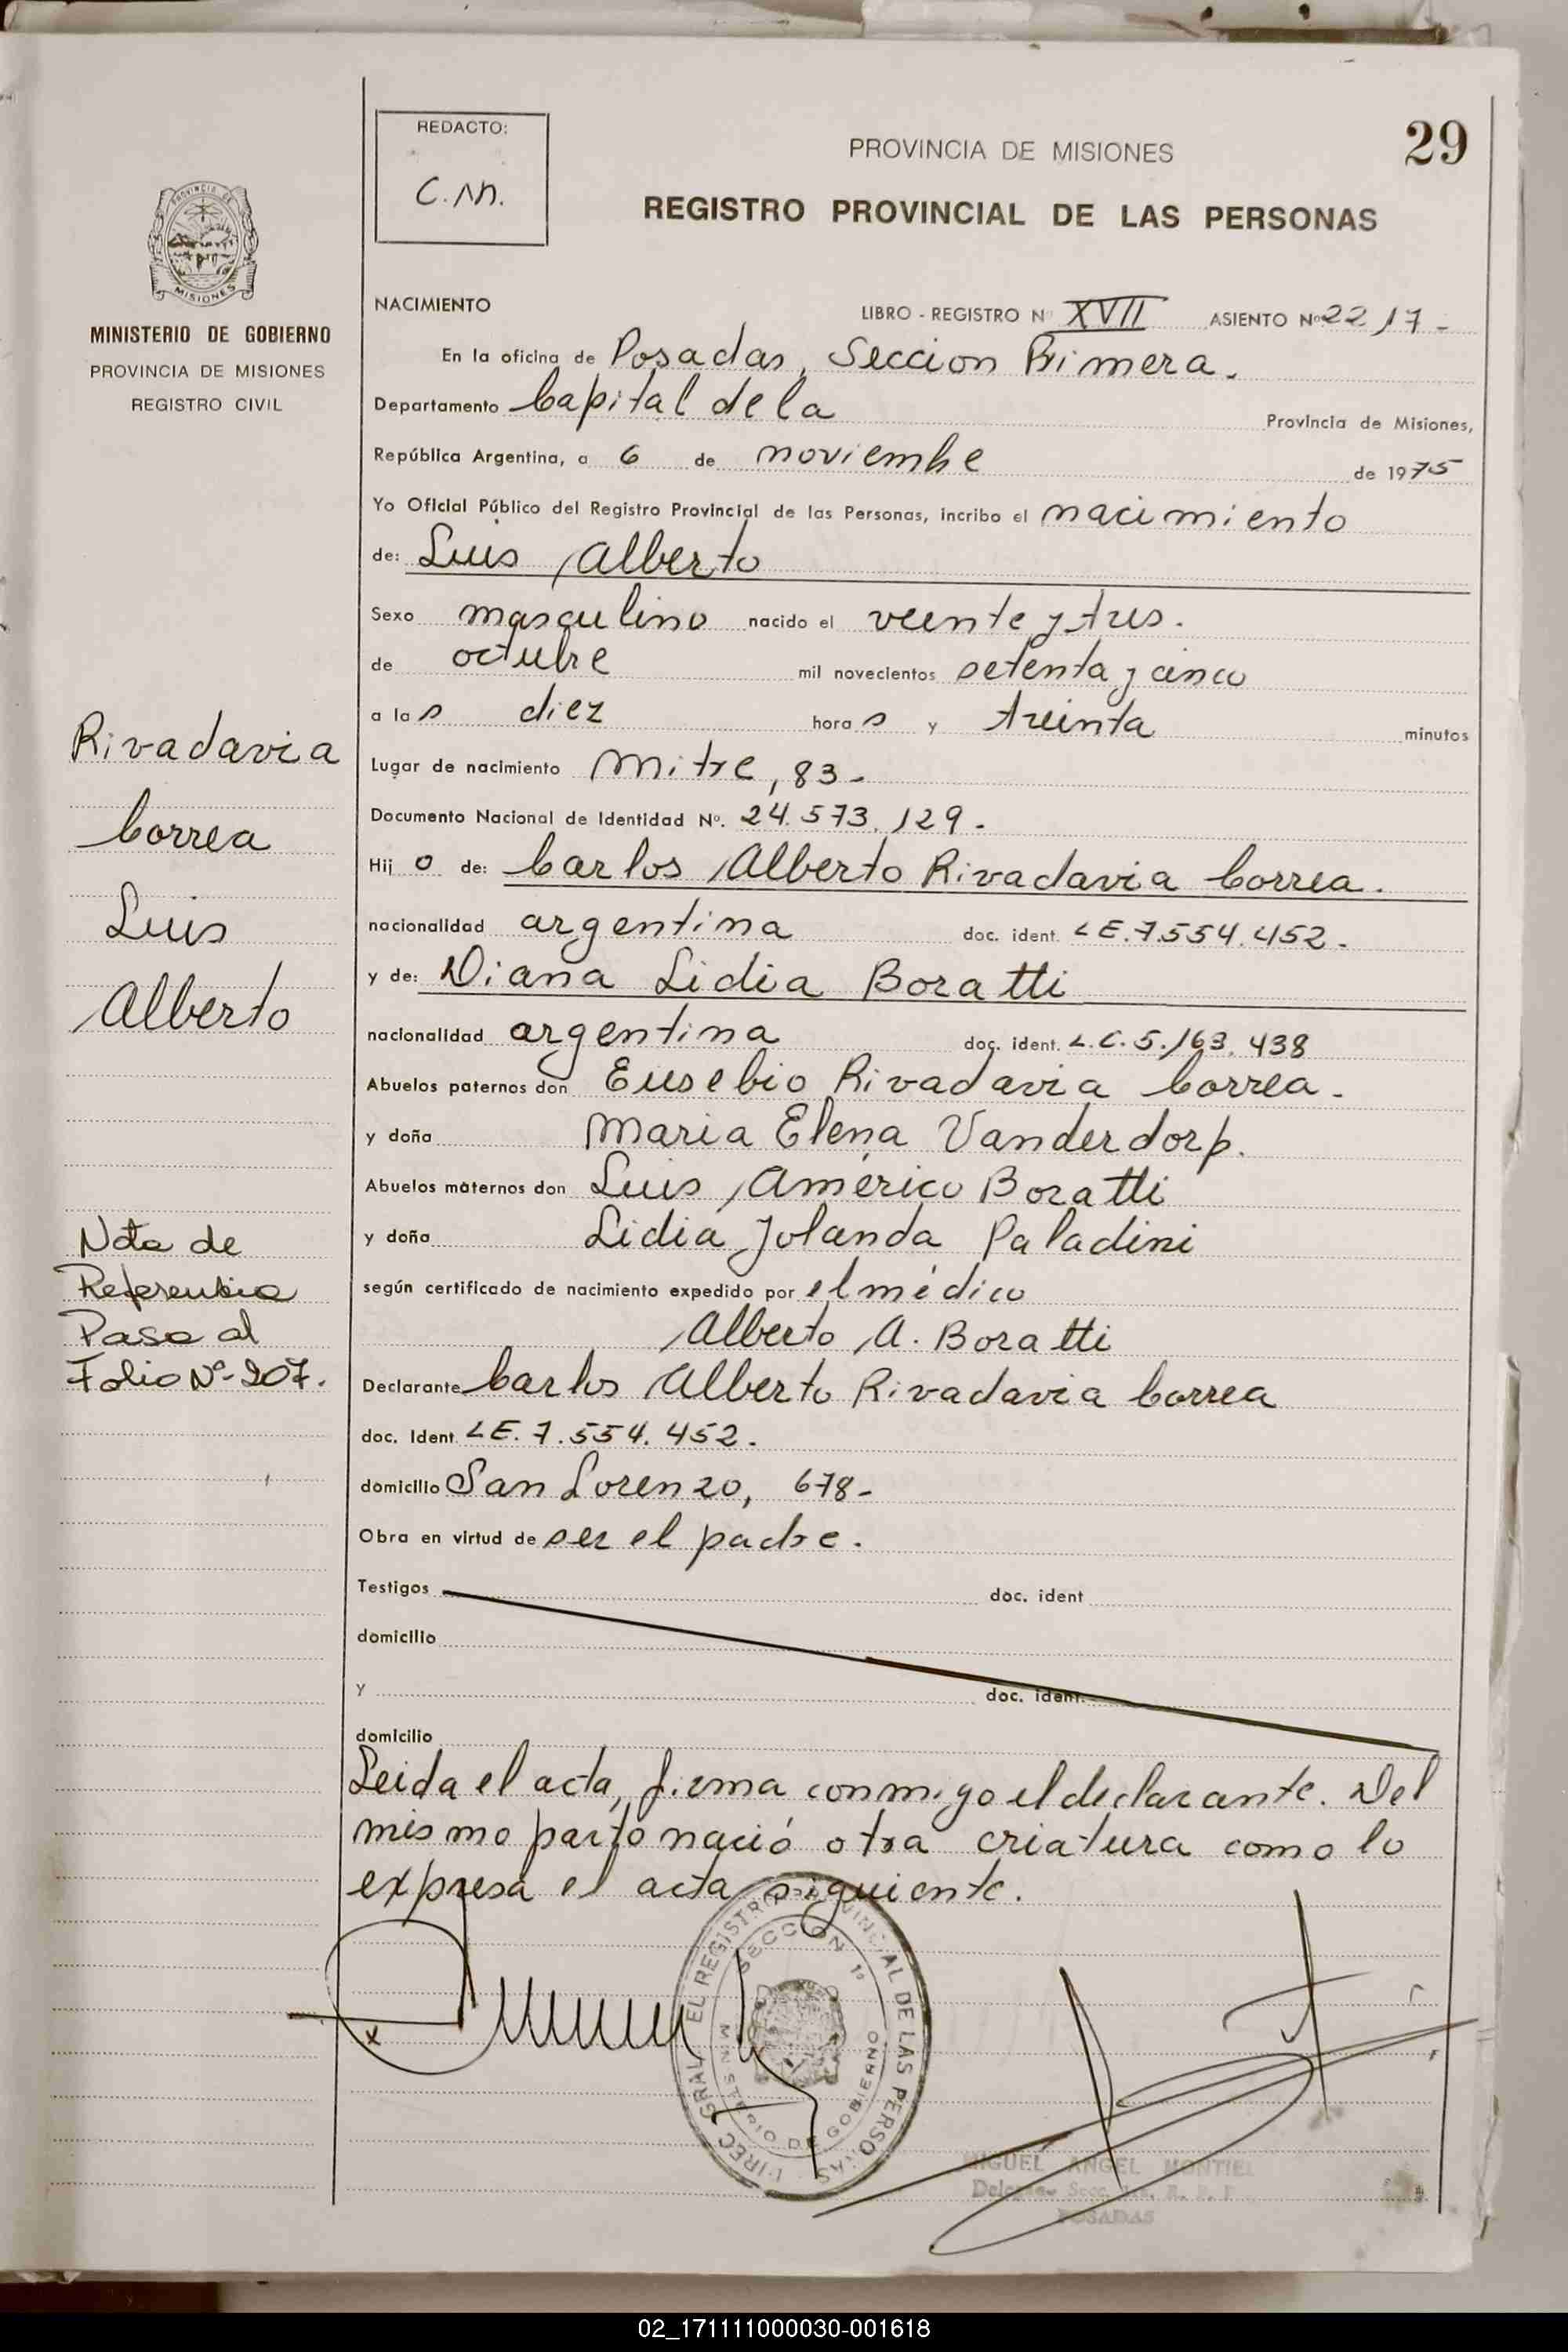 REDACTO:
C.M.
PROVINCIA DE MISIONES
29
REGISTRO PROVINCIAL DE LAS PERSONAS
PROVINCIA DE
MISIONES
MINISTERIO DE GOBIERNO
PROVINCIA DE MISIONES
REGISTRO CIVIL
NACIMIENTO LIBRO - REGISTRO Nº XVII ASIENTO Nº 2217-
En la oficina de Posadas, Seccion Primera.
Departamento Capital de la Provincia de Misiones,
República Argentina, a 6 de noviembre de 1975
Yo Oficial Público del Registro Provincial de las Personas, incribo el nacimiento
de: Luis Alberto
Sexo masculino nacido el veinte y tres.
de octubre mil novecientos setenta y cinco
a las diez horas y treinta minutos
Lugar de nacimiento Mitre, 83-
Documento Nacional de Identidad Nº. 24.573.129-
Hijo de: Carlos Alberto Rivadavia Correa.
nacionalidad argentina doc. ident. LE.7.554.452-
y de: Diana Lidia Boratti
nacionalidad argentina doc. ident. L.C.5.163.438
Abuelos paternos don Eusebio Rivadavia Correa-
y doña Maria Elena Vanderdorp.
Abuelos maternos don Luis Américo Boratti
y doña Lidia Jolanda Paladini
según certificado de nacimiento expedido por el médico
Alberto A. Boratti
Declarante Carlos Alberto Rivadavia Correa
doc. Ident. LE.7.554.452-
domicilio San Lorenzo, 678-
Obra en virtud de ser el padre.
Testigos doc. ident
domicilio
y doc. ident.
domicilio
Leida el acta, firma conmigo el declarante. Del
mismo parto nació otra criatura como lo
expresa el acta siguiente.
Rivadavia
Correa
Luis
Alberto
Nota de
Referencia
Pasa al
Folio Nº-207.
DIREC. GRAL. EL REGISTRO PROVINCIAL DE LAS PERSONAS
SECCION 1ª
MINISTERIO DE GOBIERNO
MIGUEL ANGEL MONTIEL
POSADAS
02_171111000030-001618